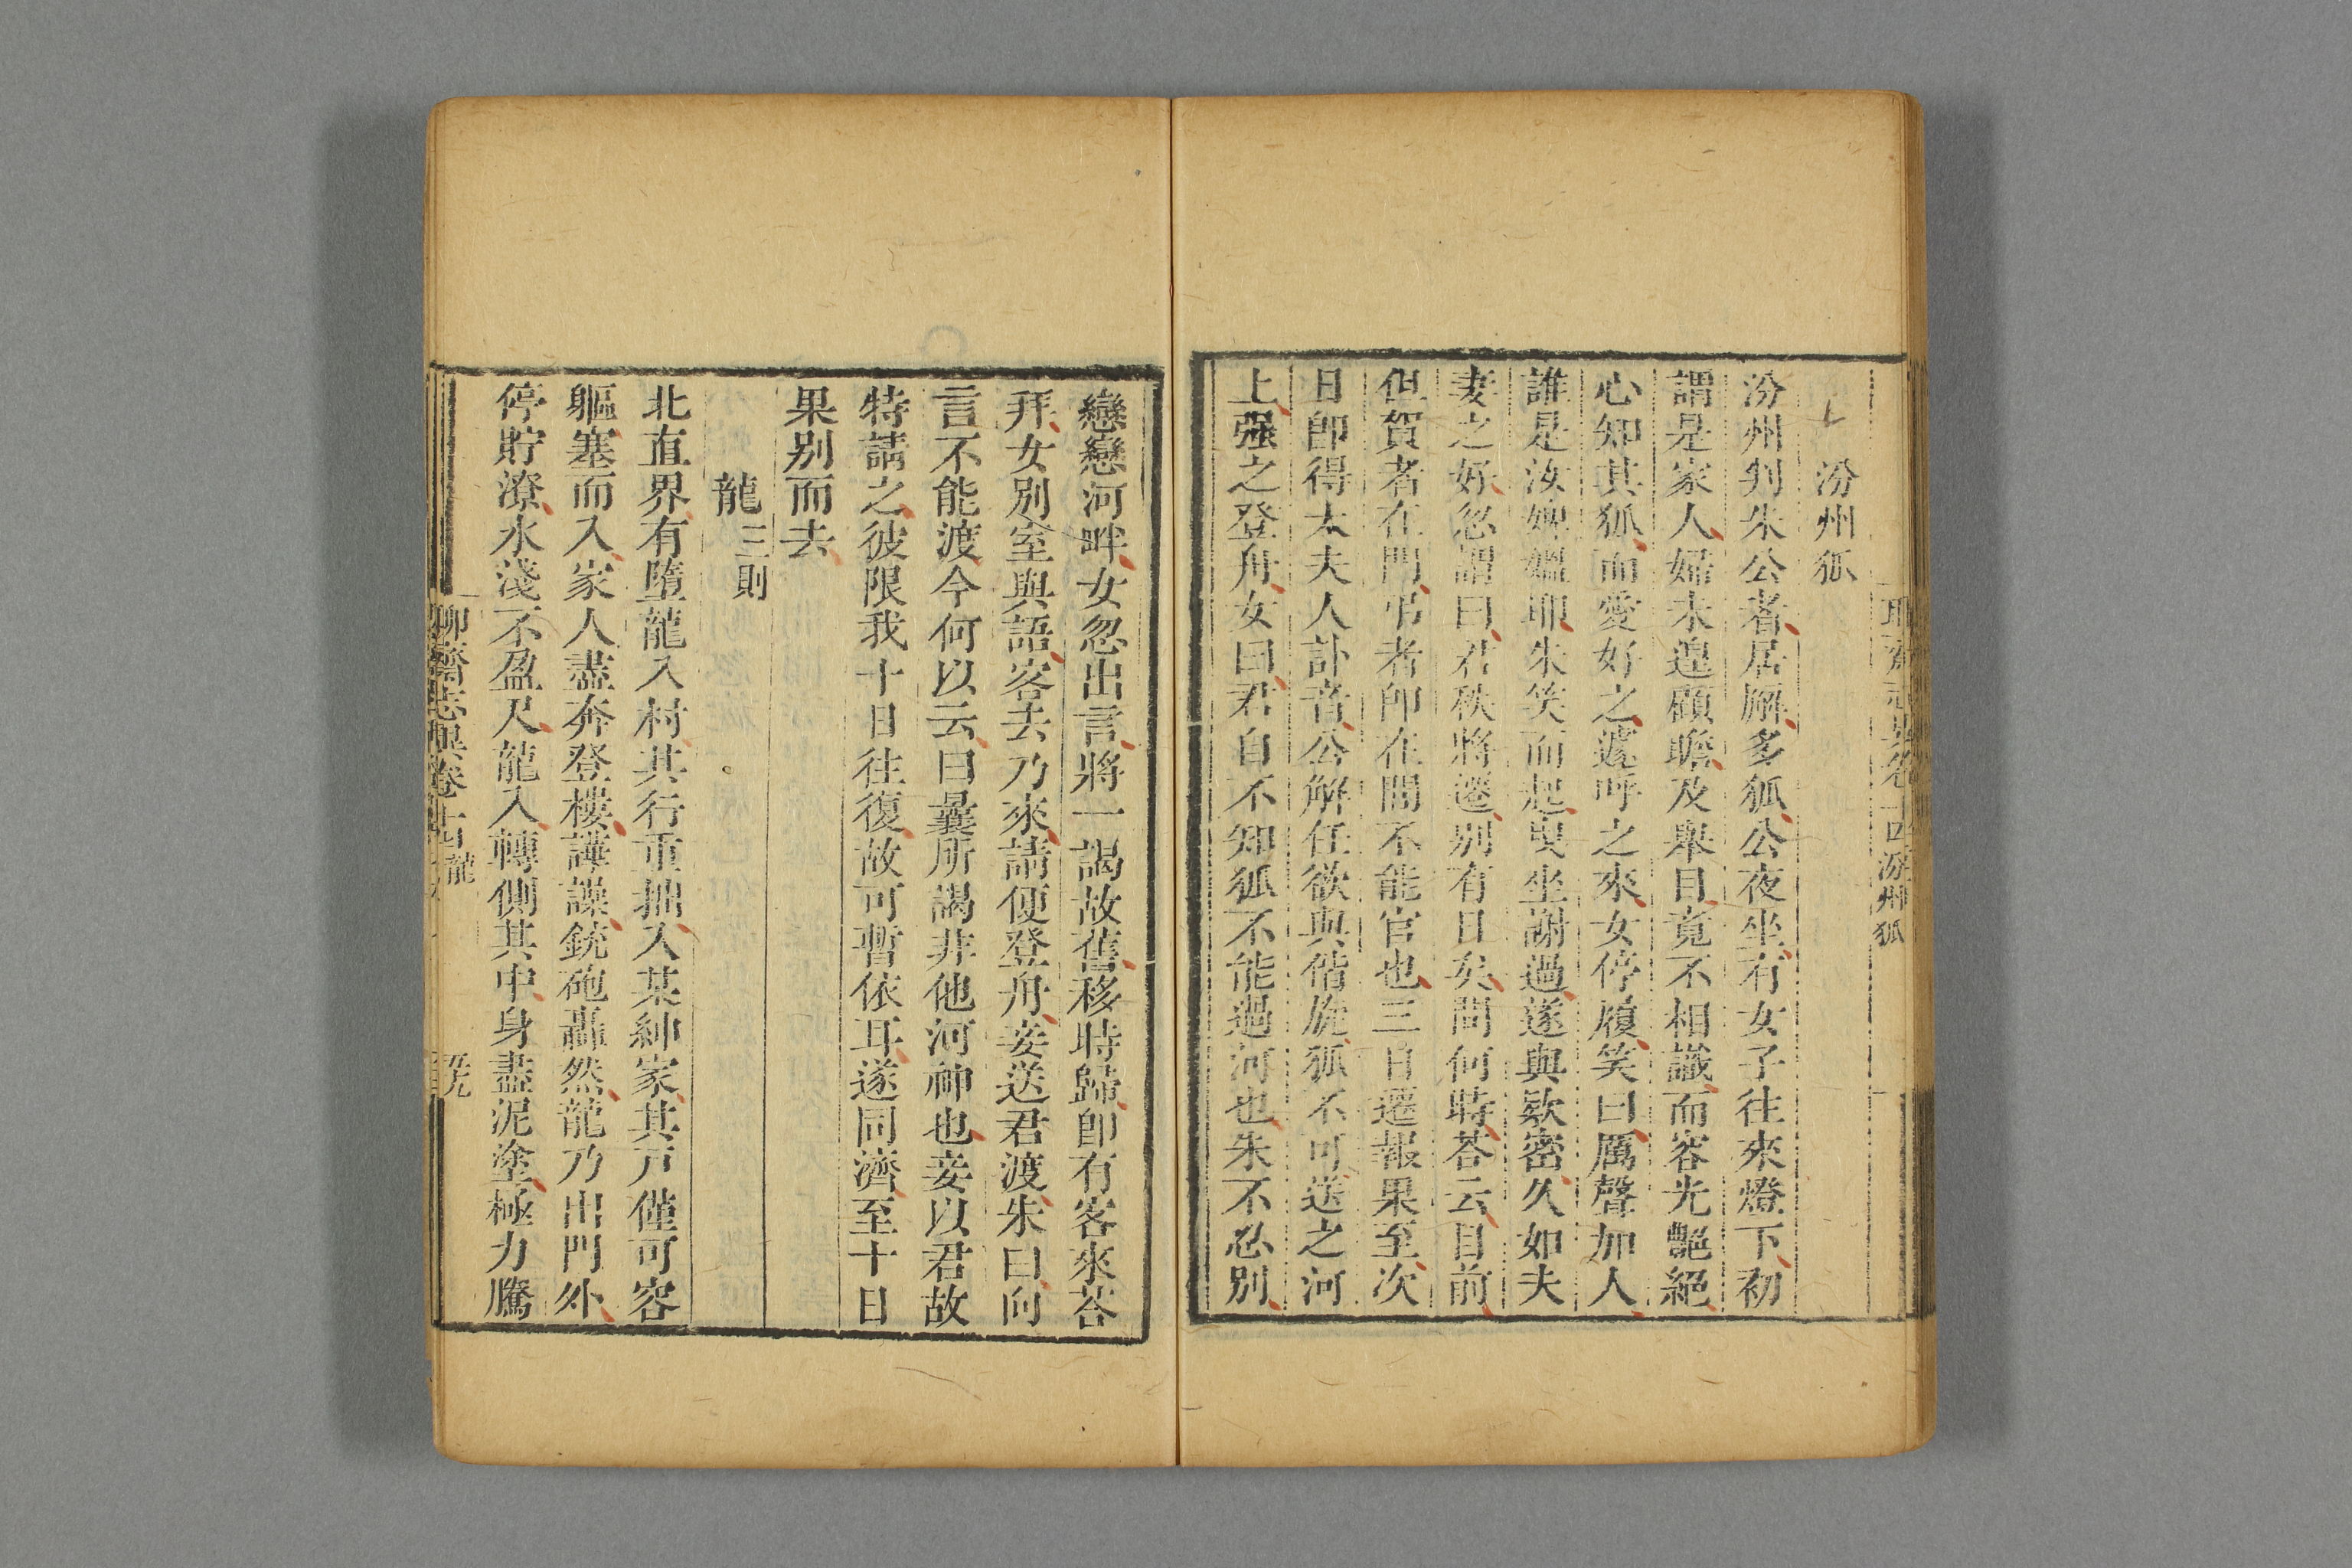 汾州狐
汾州判朱公者居廨多狐公夜坐有女子往來燈下初
謂是家人婦未遑顧瞻及舉目竟不相識而容光艷絕
心知其狐而愛好之遽呼之來女停履笑曰厲聲加人
誰是汝婢媪耶朱笑而起曳坐謝過遂與欵密久如夫
妻之好忽謂曰君秩將遷别有日矣問何時荅云目前
但賀者在門弔者即在閭不能官也三日遷報果至次
日卽得太夫人訃音公解任欲與偕旋狐不可送之河
上强之登舟女曰君自不知狐不能過河也朱不忍别
戀戀河畔女忽出言將一謁故舊移時歸卽有客來荅
拜女别室與語客去乃來請便登舟妾送君渡朱曰向
言不能渡今何以云曰曩所謁非他河神也妾以君故
特請之彼限我十日往復故可暫依耳遂同濟至十日
果别而去
龍 三則
北直界有墮龍入村其行重拙入某紳家其戸僅可容
軀塞而入家人盡奔登樓譁譟銃砲轟然龍乃出門外
停貯潦水淺不盈尺龍入轉側其中身盡泥塗極力騰
聊齋志異卷十四 龍